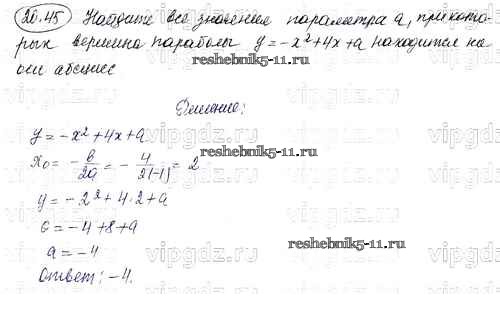 20.45 Найдите все значения параметра a, при кото-
рых вершина параболы y=-x²+4x+a находится на
оси абсцисс
reshebnik5-11.ru
Решение:
y=-x²+4x+a
reshebnik5-11.ru
x₀ = -b/2a = -4/2(-1) = 2
y = -2²+4·2+a
0=-4+8+a
a=-4
reshebnik5-11.ru
Ответ: -4.
vipgdz.ru